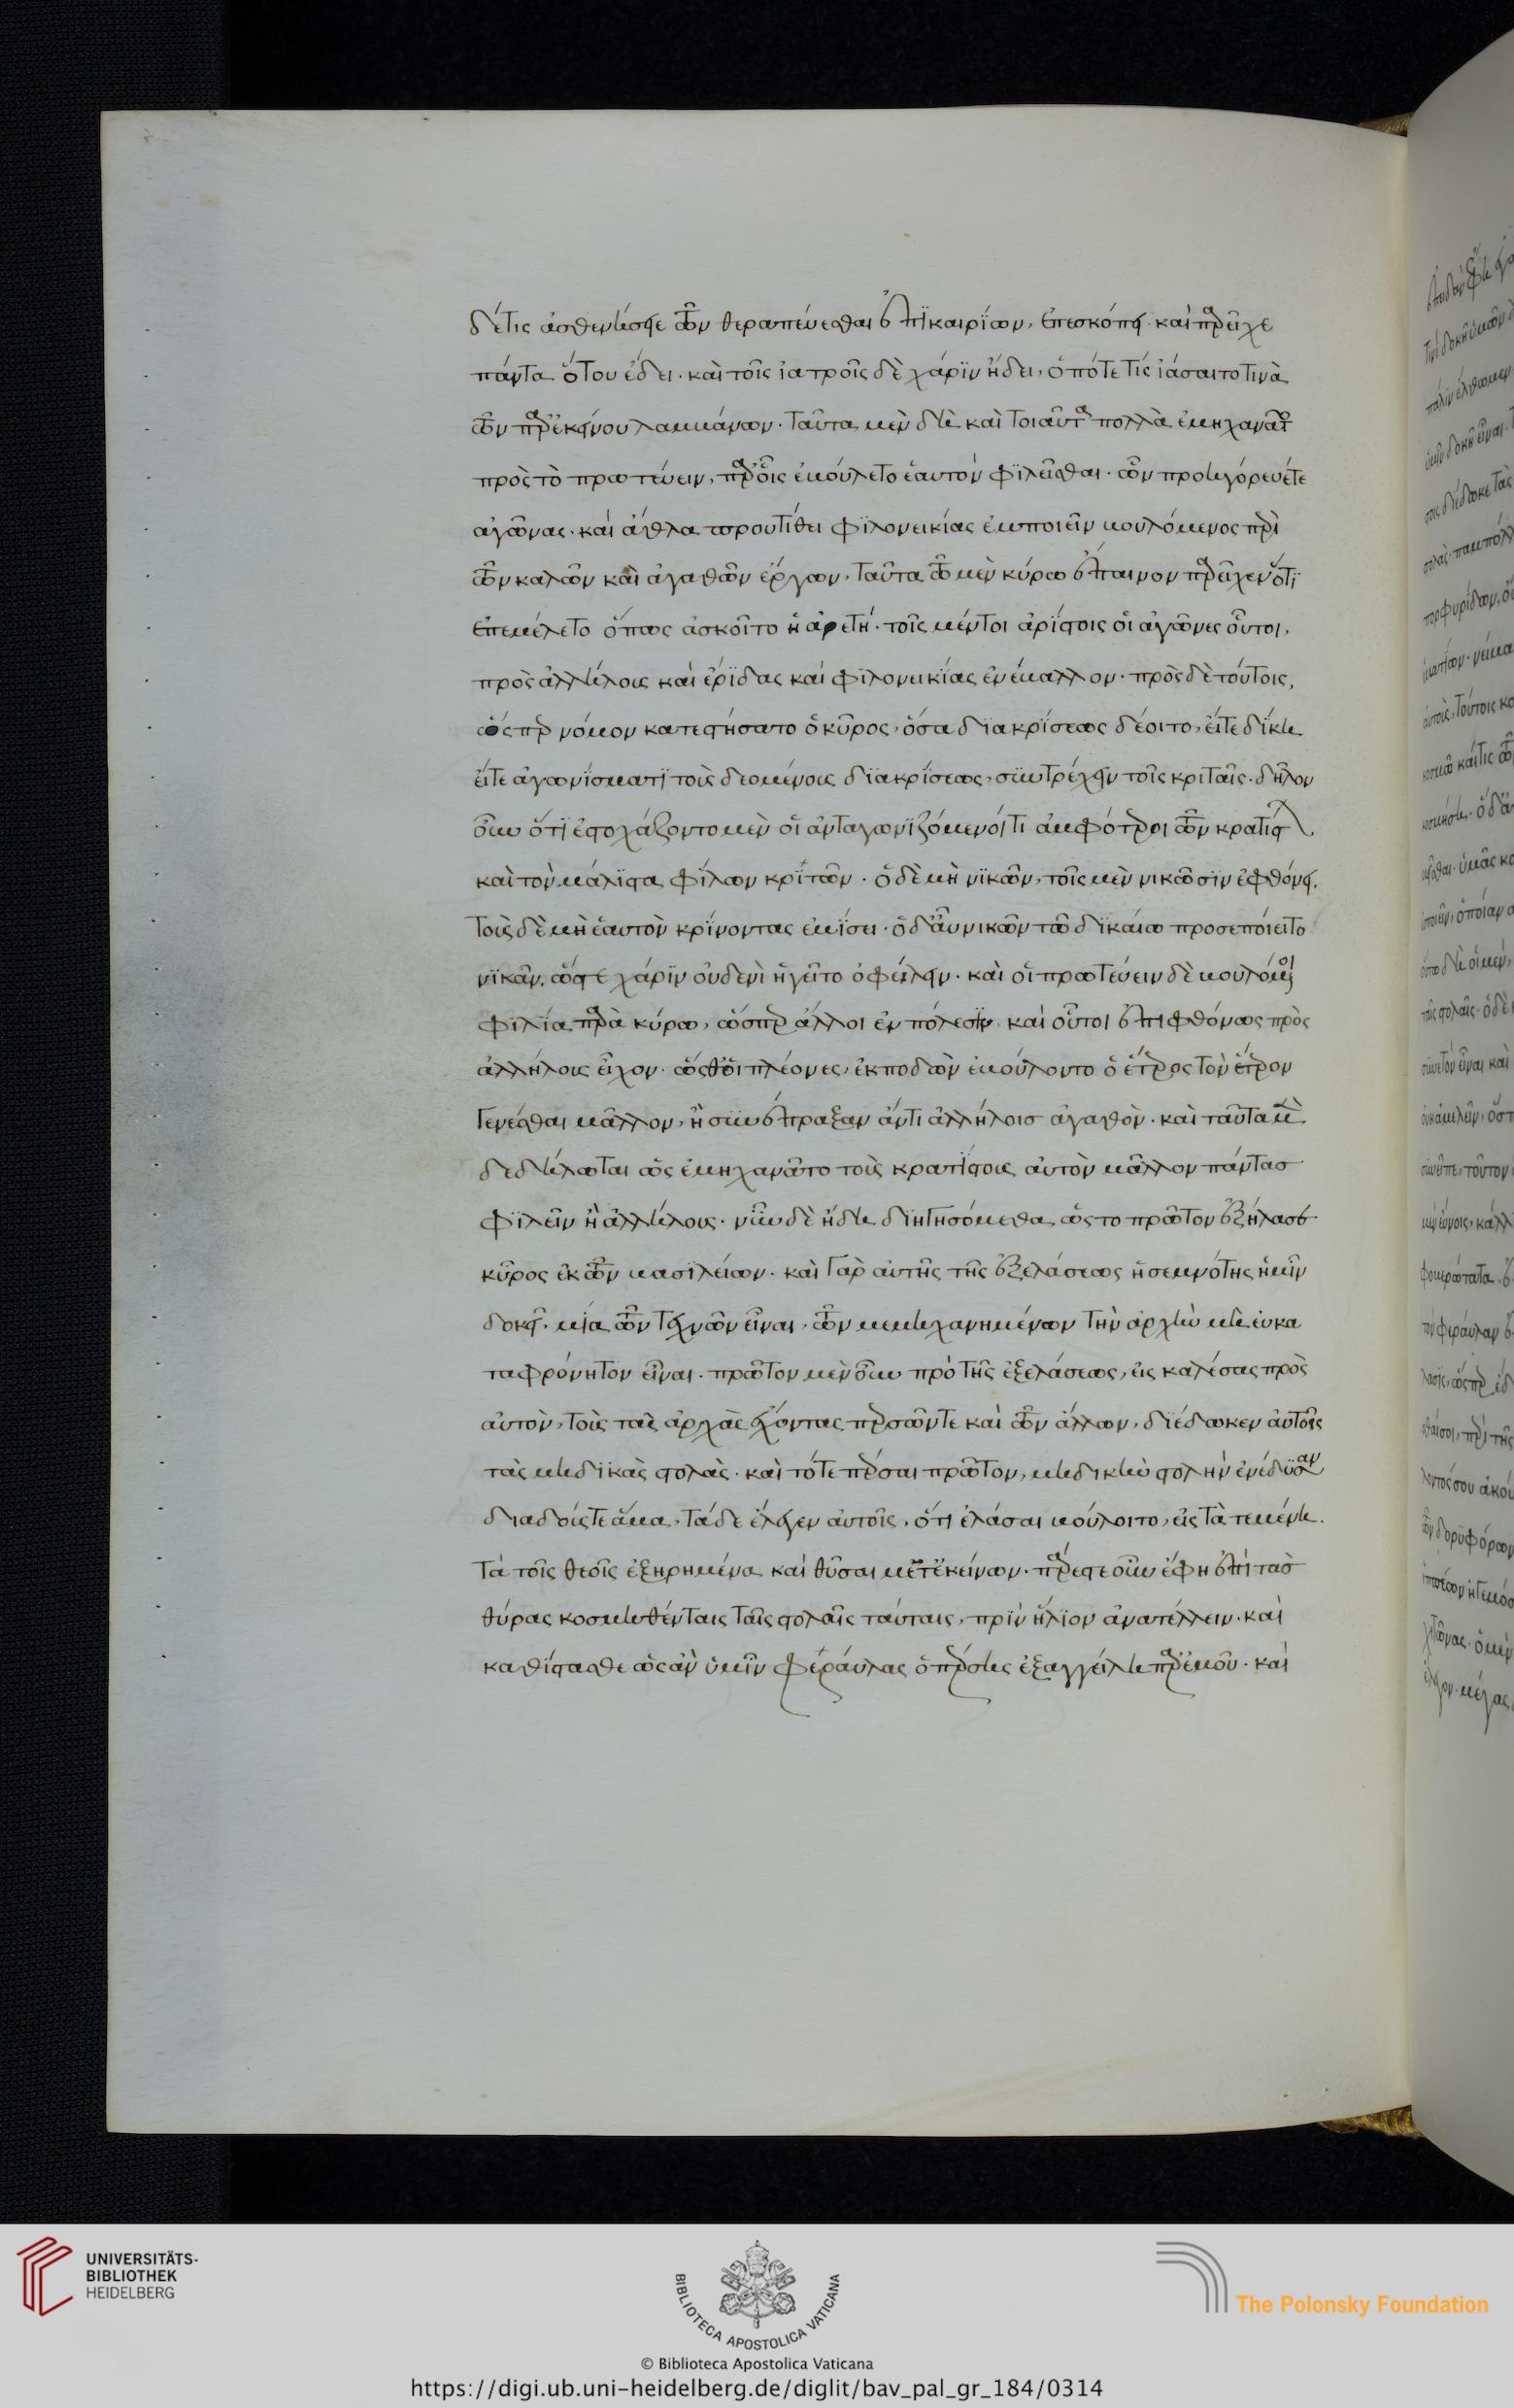 δέ τις ἀσθενήσειε τῶν θεραπεύεσθαι ἐπϊκαιρίων, ἐπεσκόπει καὶ παρεῖχε
πάντα ὅτου ἔδει. καὶ τοῖς ἰατροῖς δὲ χάρϊν ἤδει, ὁπότε τίς ἰάσαιτο τινὰ
τῶν παρ' ἐκείνου λαμβάνων. ταῦτα μὲν δὴ καὶ τοιαῦτα πολλὰ ἐμηχανᾶτο
πρὸς τὸ πρωτεύειν, παρ' οἷς ἐβούλετο ἑαυτὸν φϊλεῖσθαι. ὧν προηγόρευέ τε
ἀγῶνας. καὶ ἆθλα προυτίθει φϊλονεικίας ἐμποιεῖν βουλόμενος περὶ
τῶν καλῶν καὶ ἀγαθῶν ἔργων, ταῦτα τῶ μὲν κύρω ἔπαινον παρεῖχεν ὅτϊ
ἐπεμέλετο ὅπως ἀσκοῖτο ἡ ἀρετή. τοῖς μέντοι ἀρίστοις οἱ ἀγῶνες οὗτοι,
πρὸς ἀλλήλους καὶ ἔρϊδας καὶ φϊλονεικϊας ἐνέβαλλον. πρὸς δὲ τούτοις,
ὥσπερ νόμον κατεστήσατο ὁ κῦρος, ὅσα διακρίσεως δέοιτο, εἴτε δίκη
εἴτε ἀγωνίσματϊ τοὺς δεομένους διακρίσεως, συντρέχειν τοῖς κριταῖς. δῆλον
οὖν ὅτϊ ἐστοχάζοντο μὲν οἱ ἀνταγωνϊζόμενοί τι ἀμφότεροι τῶν κρατίστων
καὶ τὸν μάλϊστα φίλων κρϊτῶν. ὁ δὲ μὴ νϊκῶν, τοῖς μὲν νικῶσϊν ἐφθόνει.
τοὺς δὲ μὴ ἑαυτὸν κρίνοντας ἐμίσει. ὁ δ' αὖ νικῶν τῶ δϊκαίω προσεποιεῖτο
νϊκᾶν, ὥστε χάρϊν οὐδενὶ ἡγεῖτο ὀφείλειν. καὶ οἱ πρωτεύειν δὲ βουλόμενοι
φϊλία παρὰ κύρω, ὥσπερ ἄλλοι ἐν πόλεσϊν, καὶ οὗτοι ἐπιφθόνως πρὸς
ἀλλήλους εἶχον. ὥσθ' οἱ πλέονες, ἐκποδὼν ἐβούλοντο ὁ ἕτερος τὸν ἕτερον
γενέσθαι μᾶλλον, ἢ συνέπραξαν ἄν τι ἀλλήλοισ ἀγαθὸν. καὶ ταῦτα μὲν
δεδήλωται ὡς ἐμηχανᾶτο τοὺς κρατϊστους αὐτὸν μᾶλλον πάντασ
φϊλεῖν ἢ ἀλλήλους. νῦν δὲ ἤδη δϊηγησόμεθα ὡς το πρῶτον ἐξήλασε
κῦρος ἐκ τῶν βασιλείων. καὶ γὰρ αὐτῆς τῆς ἐξελάσεως ἡ σεμνότης ἡμῖν
δοκεῖ. μία τῶν τεχνῶν εἶναι, τῶν μεμηχανημένων τὴν ἀρχὴν μὴ εὐκα
ταφρόνητον εἶναι. πρῶτον μὲν οὖν πρὸ τῆς ἐξελάσεως, εἰσκαλέσας πρὸς
αὐτὸν, τοὺς τὰς ἀρχὰς ἔχοντας περσῶν τε καὶ τῶν ἄλλων, δϊέδωκεν αὐτοῖς
τὰς μηδϊκὰς στολὰς. καὶ τότε πέρσαι πρῶτον, μηδικὴν στολὴν ἐνέδϋσαν
διαδούς τε ἅμα, τάδε ἔλεγεν αὐτοῖς, ὅτι ἐλάσαι βούλοιτο, εἰς τὰ τεμένη.
τὰ τοῖς θεοῖς ἐξηρημένα καὶ θῦσαι μετ' ἐκείνων. πάρεστε οὖν ἔφη ἐπὶ τὰσ
θύρας κοσμηθέντες ταῖς στολαῖς ταύταις, πρϊν ἥλϊον ἀνατέλλειν. καὶ
καθίστασθε ὡς ἂν ὑμῖν φεραύλας ὁ πέρσης ἐξαγγείλη παρ' ἐμοῦ. καὶ
UNIVERSITÄTS-
BIBLIOTHEK
HEIDELBERG
BIBLIOTECA APOSTOLICA VATICANA
The Polonsky Foundation
© Biblioteca Apostolica Vaticana
https://digi.ub.uni-heidelberg.de/diglit/bav_pal_gr_184/0314